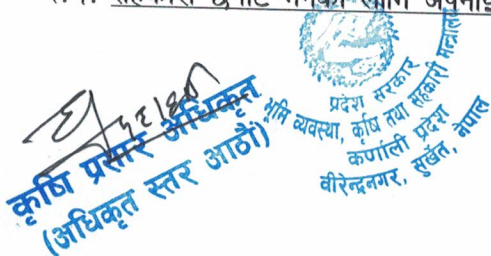 सहकारी छनौट
लागि
कृषि प्रसार अधिकृत
(अधिकृत स्तर आठौं)
प्रदेश सरकार
भूमि व्यवस्था, कृषि तथा सहकारी मन्त्रालय
कर्णाली प्रदेश
वीरेन्द्रनगर, सुर्खेत, नेपाल